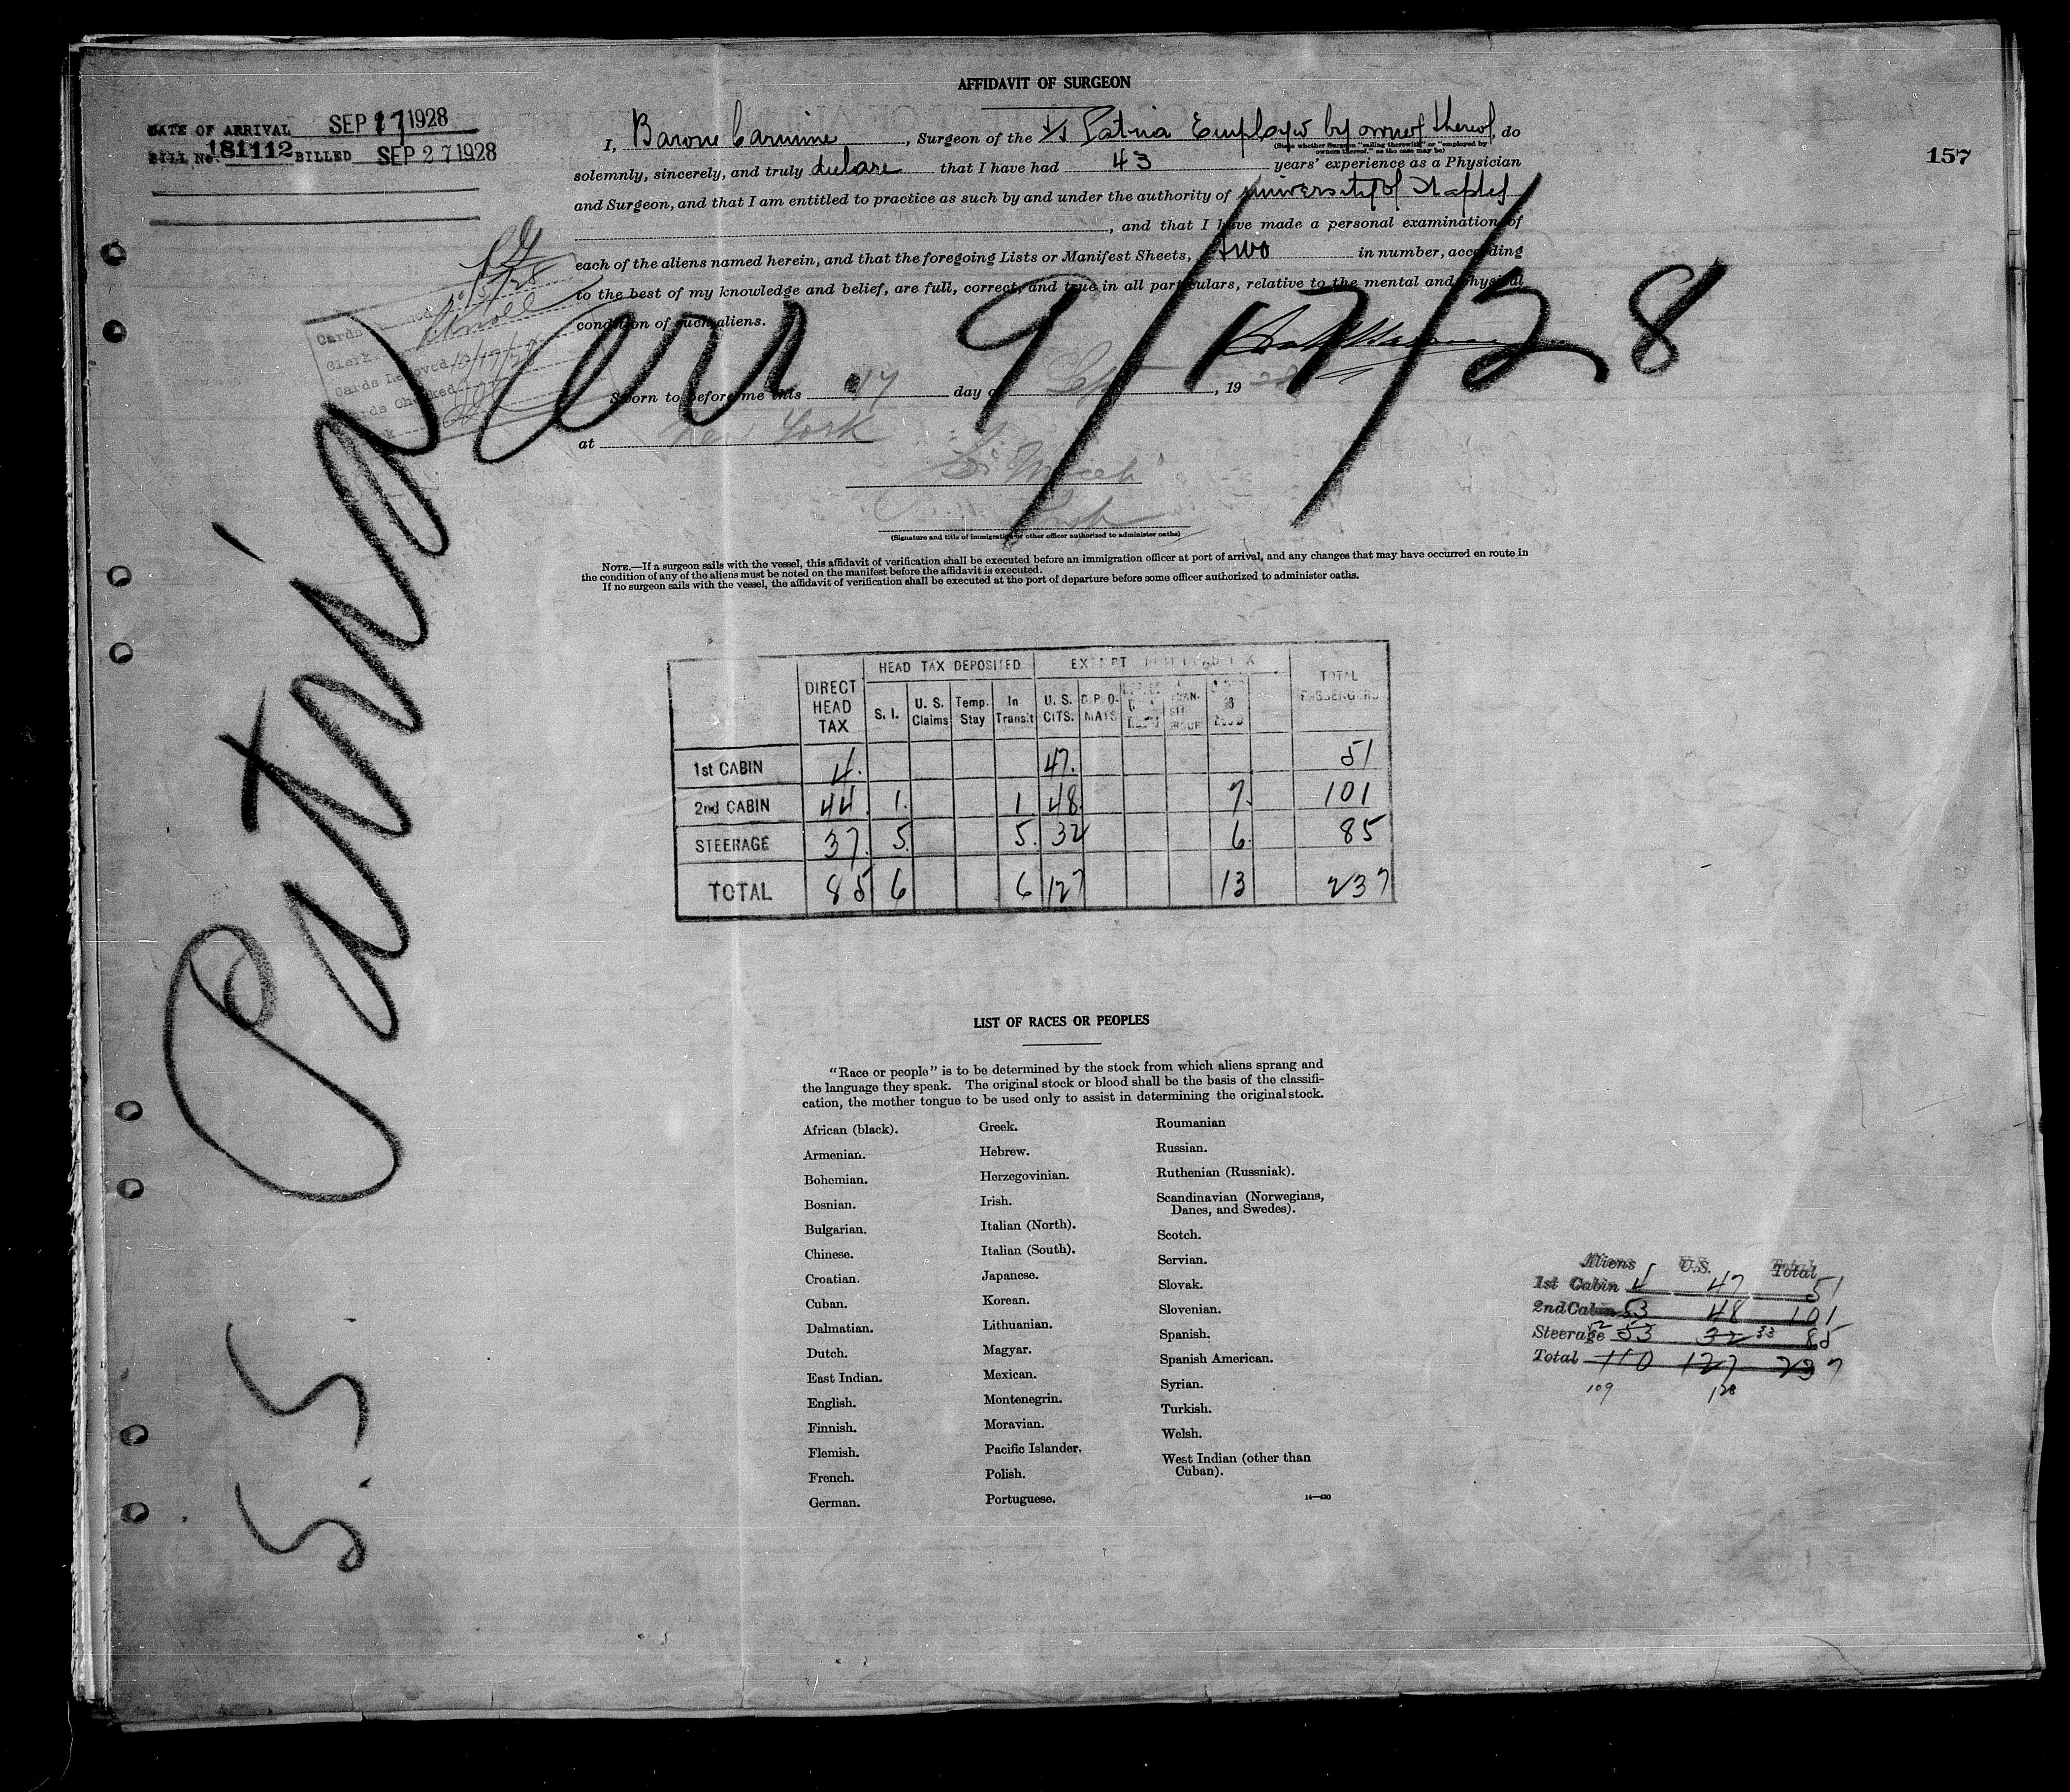 AFFIDAVIT OF SURGEON
DATE OF ARRIVAL SEP 17 1928
BILL No. 181112 BILLED SEP 27 1928
157
I, Barone Carmine, Surgeon of the S/S Patria Employed by owner thereof, do
(State whether Surgeon "sailing therewith" or "employed by
owners thereof," as the case may be)
solemnly, sincerely, and truly declare that I have had 43 years' experience as a Physician
and Surgeon, and that I am entitled to practice as such by and under the authority of University of Naples
, and that I have made a personal examination of
each of the aliens named herein, and that the foregoing Lists or Manifest Sheets, two in number, according
to the best of my knowledge and belief, are full, correct, and true in all particulars, relative to the mental and physical
condition of such aliens.
Arr. 9/17/28
Cards
Clerk Knoll
Cards Removed
Cards Checked
Sworn to before me this 17 day of Sept, 1928
at New York
(Signature and title of immigration or other officer authorized to administer oaths)
NOTE.—If a surgeon sails with the vessel, this affidavit of verification shall be executed before an immigration officer at port of arrival, and any changes that may have occurred en route in
the condition of any of the aliens must be noted on the manifest before the affidavit is executed.
If no surgeon sails with the vessel, the affidavit of verification shall be executed at the port of departure before some officer authorized to administer oaths.
S.S. Patria
DIRECT HEAD TAX HEAD TAX DEPOSITED EXEMPT TOTAL PASSENGERS
S. I. U. S. Claims Temp. Stay In Transit U. S. CITS. DIPLOMATS
1st CABIN 4. 47. 51
2nd CABIN 44. 1. 1 48. 7. 101
STEERAGE 37. 5. 5. 32 6. 85
TOTAL 85 6 6 127 13 237
LIST OF RACES OR PEOPLES
"Race or people" is to be determined by the stock from which aliens sprang and
the language they speak. The original stock or blood shall be the basis of the classifi-
cation, the mother tongue to be used only to assist in determining the original stock.
African (black).
Armenian.
Bohemian.
Bosnian.
Bulgarian.
Chinese.
Croatian.
Cuban.
Dalmatian.
Dutch.
East Indian.
English.
Finnish.
Flemish.
French.
German.
Greek.
Hebrew.
Herzegovinian.
Irish.
Italian (North).
Italian (South).
Japanese.
Korean.
Lithuanian.
Magyar.
Mexican.
Montenegrin.
Moravian.
Pacific Islander.
Polish.
Portuguese.
Roumanian
Russian.
Ruthenian (Russniak).
Scandinavian (Norwegians,
Danes, and Swedes).
Scotch.
Servian.
Slovak.
Slovenian.
Spanish.
Spanish American.
Syrian.
Turkish.
Welsh.
West Indian (other than
Cuban).
14—430
Aliens U.S. Total
1st Cabin 4 47 51
2nd Cabin 53 48 101
Steerage 52 53 32 33 85
Total 110 127 237
109 128